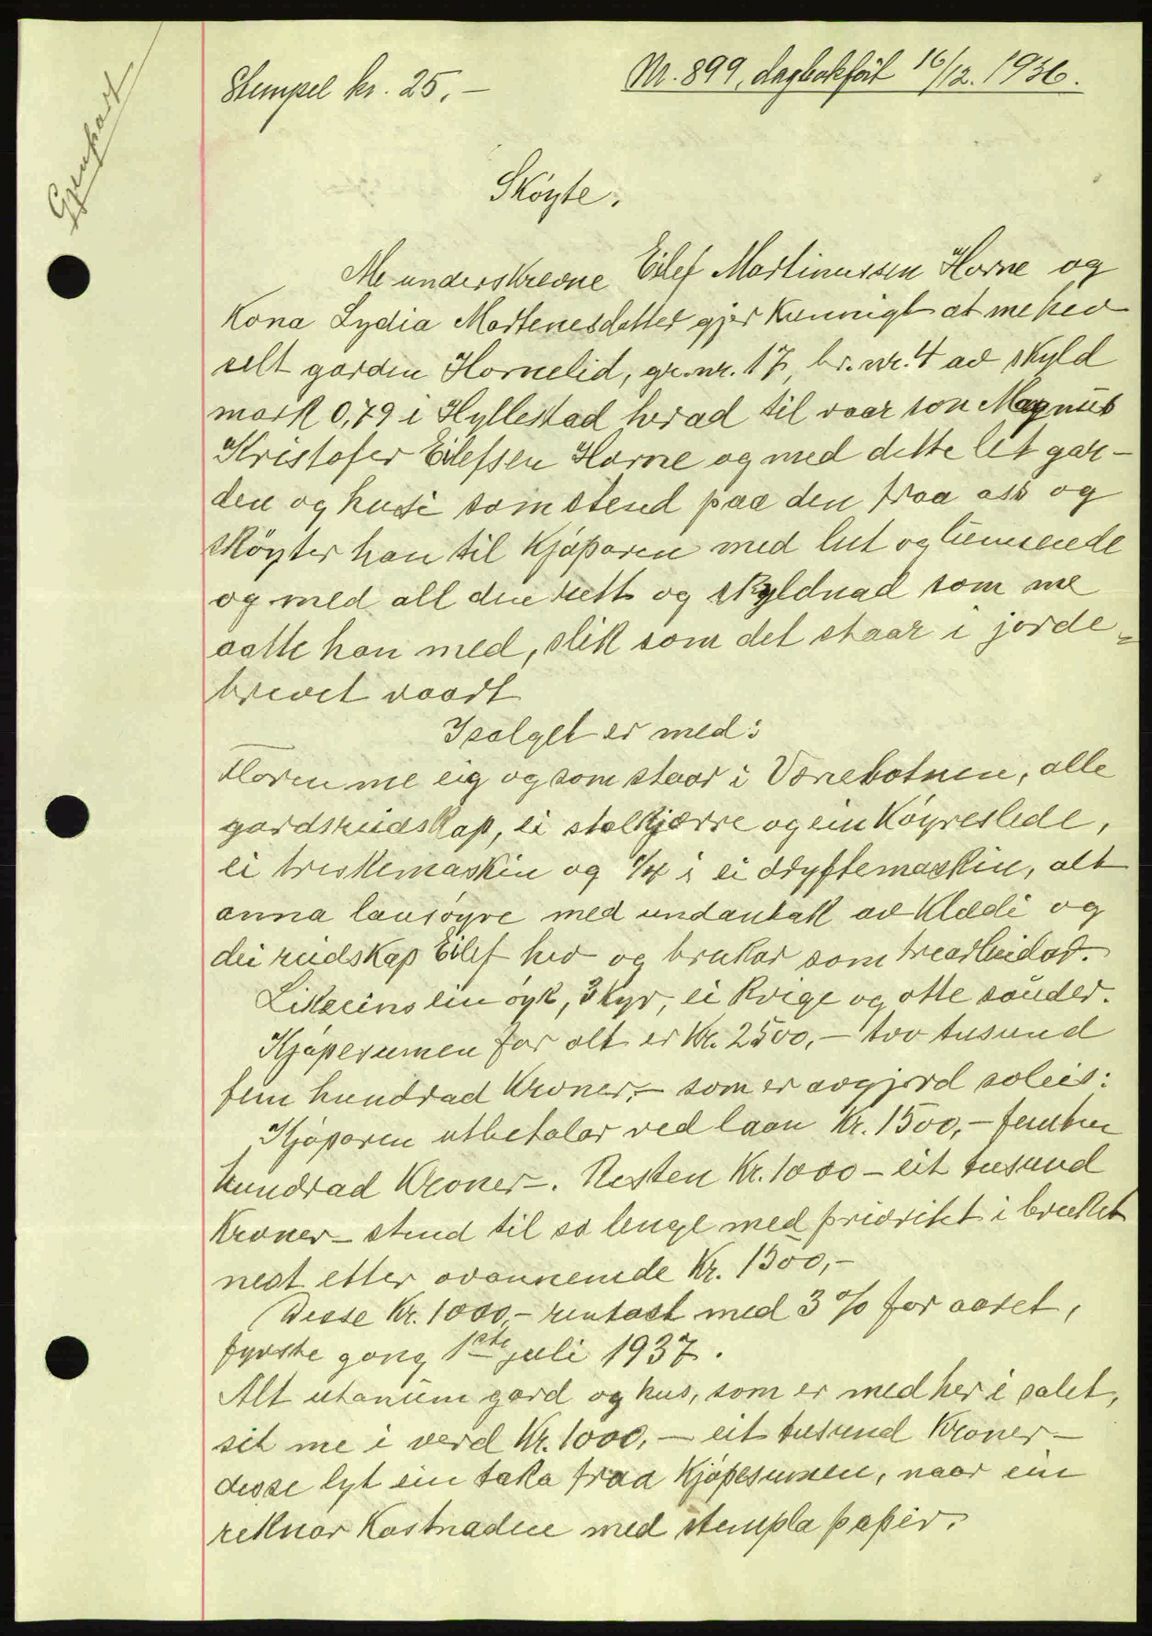 Gjenpart
Stempel kr. 25,-
Nr. 899, dagbokført 16/12. 1936.
Skøyte.
Me underskrevne Eilef Martinussen Horne og
Kona Lydia Mortenesdatter gjer kunnigt at me hev
selt garden Hornelid, gr.nr. 17, br.nr. 4 av skyld
mark 0,79 i Hyllestad herad til vaar son Magnus
Kristofer Eilefsen Horne og med dette let gar-
den og husi som stend paa den fraa oss og
skøyter han til Kjøparen med lut og lunnende
og med all den rett og skyldnad som me
aatte han med, slik som det staar i jorde-
brevet vaart
I salget er med:
Floren me eig og som staar i Vorebotnen, alle
gardsreidskap, ei stolkjærre og ein Køyreslede,
ei treskemaskin og 1/4 i ei dryftemaskin, alt
anna lausøyre med undantak av Klædi og
dei reidskap Eilef hev og brukar som trearbeidar.
Likseins ein øyk, 3 kyr, ei kvige og otte sauder.
Kjøpesumen for alt er kr. 2500,- tvo tusund
fem hundrad Kroner,- som er avgjord soleis:
Kjøparen utbetalar ved laan kr. 1500,- femten
hundrad Kroner-. Resten kr. 1000 - eit tusund
Kroner - stend til so lenge med prioritet i bruket
nest etter ovannemde kr. 1500,-
Desse kr. 1000,- rentast med 3 % for aaret,
fyrste gong 1ste juli 1937.
Alt utanum gard og hus, som er med her i salet,
set me i verd kr. 1000,- eit tusund Kroner -
desse lyt ein taka fraa Kjøpesumen, naar ein
reknar Kostnaden med stempla papir.